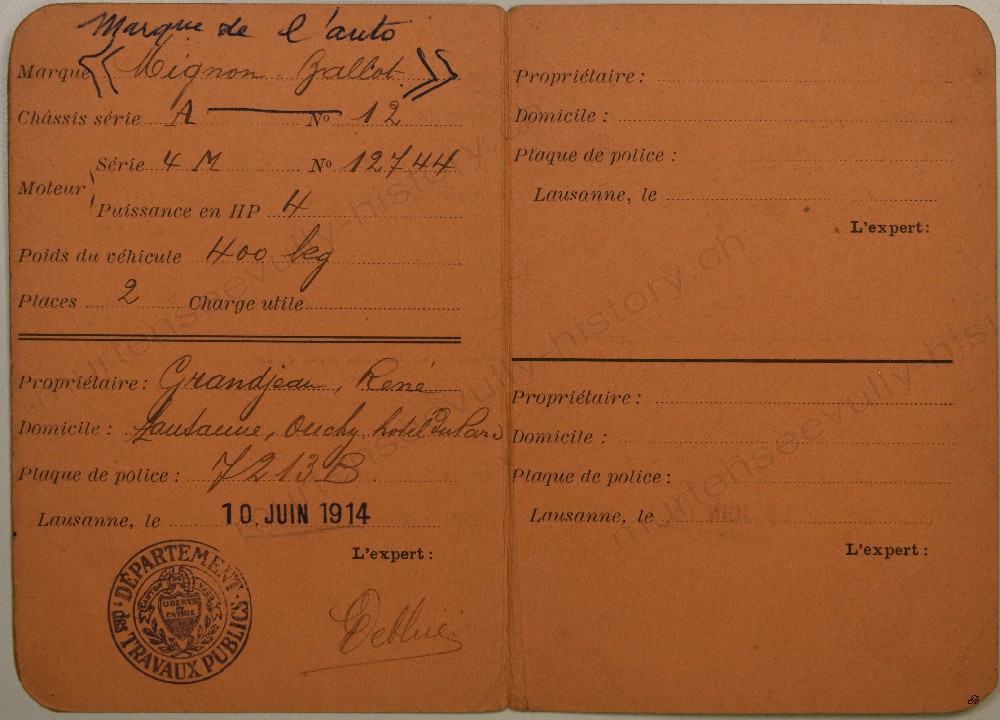 Marque de l'auto
Marque « Mignon - Ballot »
Châssis série A Nº 12
Série 4 M Nº 12744
Moteur
Puissance en HP 4
Poids du véhicule 400 kg
Places 2 Charge utile
Propriétaire: Grandjean, René
Domicile: Lausanne, Ouchy, hotel Du Parc
Plaque de police: 7213 B
Lausanne, le 10. JUIN 1914
L'expert:
DÉPARTEMENT
des
TRAVAUX PUBLICS
CANTON DE VAUD
LIBERTÉ
ET
PATRIE
Propriétaire:
Domicile:
Plaque de police:
Lausanne, le
L'expert:
Propriétaire:
Domicile:
Plaque de police:
Lausanne, le
L'expert:
murtenseevully-history.ch
murtenseevully-history.ch
murtenseevully-history.ch